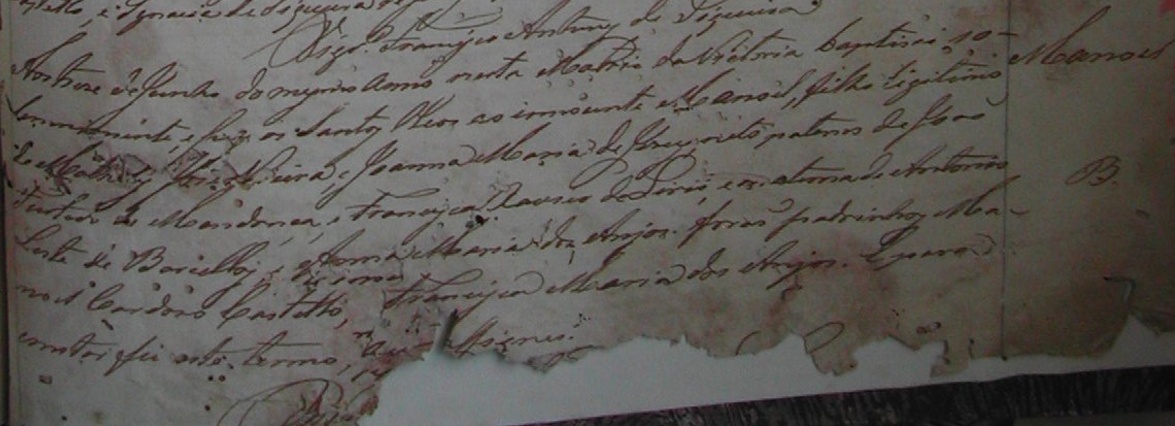 e Ignacia de Siqueira
Vigr.º Francisco Antunes de Siqueira
Aos treze de Junho do mesmo anno nesta Matriz da Victoria baptisei so-
lemnemente, e puz os Santos Oleos ao innocente Manoel, filho legitimo
Manoel
de Vieira, e Joanna Maria de Jesus, neto paterno de João
Furtado de Mendonça, e Francisca de e materno de Antonio
Leite de Barcellos, e Anna Maria dos Anjos. forão padrinhos Ma-
B.
noel Cardoso Castello, Francisca Maria dos Anjos. E para
constar fiz este termo, que assignei.